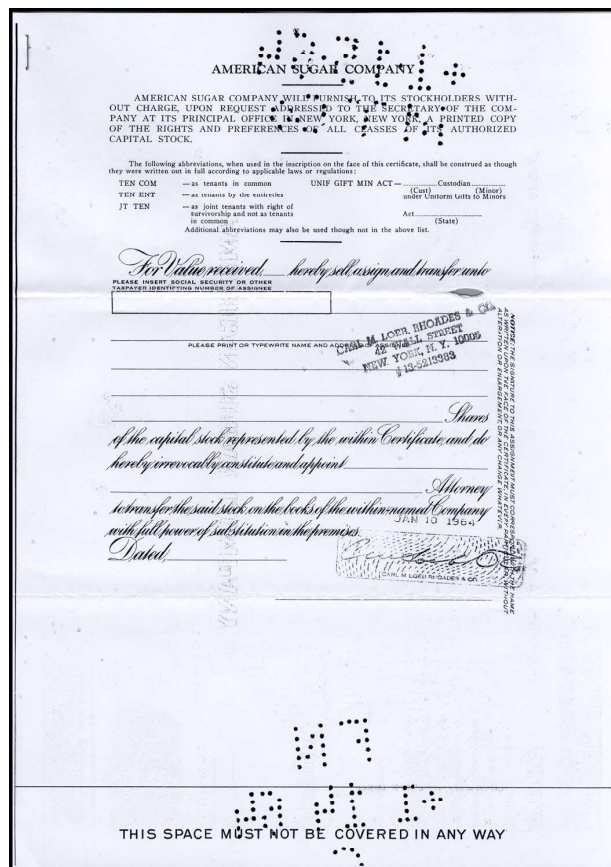 AMERICAN SUGAR COMPANY
AMERICAN SUGAR COMPANY WILL FURNISH TO ITS STOCKHOLDERS WITH-
OUT CHARGE, UPON REQUEST ADDRESSED TO THE SECRETARY OF THE COM-
PANY AT ITS PRINCIPAL OFFICE IN NEW YORK, NEW YORK, A PRINTED COPY
OF THE RIGHTS AND PREFERENCES OF ALL CLASSES OF ITS AUTHORIZED
CAPITAL STOCK.
The following abbreviations, when used in the inscription on the face of this certificate, shall be construed as though
they were written out in full according to applicable laws or regulations:
TEN COM — as tenants in common UNIF GIFT MIN ACT — Custodian
(Cust) (Minor)
TEN ENT — as tenants by the entireties under Uniform Gifts to Minors
JT TEN — as joint tenants with right of
survivorship and not as tenants
in common
Act
(State)
Additional abbreviations may also be used though not in the above list.
For Value received, hereby sell, assign, and transfer unto
PLEASE INSERT SOCIAL SECURITY OR OTHER
TAXPAYER IDENTIFYING NUMBER OF ASSIGNEE
CARL M. LOEB, RHOADES & CO.
42 WALL STREET
NEW YORK, N. Y. 10005
PLEASE PRINT OR TYPEWRITE NAME AND ADDRESS OF ASSIGNEE
Shares
of the capital stock represented by the within Certificate, and do
hereby irrevocably constitute and appoint
Attorney
to transfer the said stock on the books of the within-named Company
with full power of substitution in the premises.
JAN 10 1964
Dated,
CARL M LOEB RHOADES & CO
NOTICE: THE SIGNATURE TO THIS ASSIGNMENT MUST CORRESPOND WITH THE NAME
AS WRITTEN UPON THE FACE OF THE CERTIFICATE, IN EVERY PARTICULAR, WITHOUT
ALTERATION OR ENLARGEMENT, OR ANY CHANGE WHATEVER.
THIS SPACE MUST NOT BE COVERED IN ANY WAY